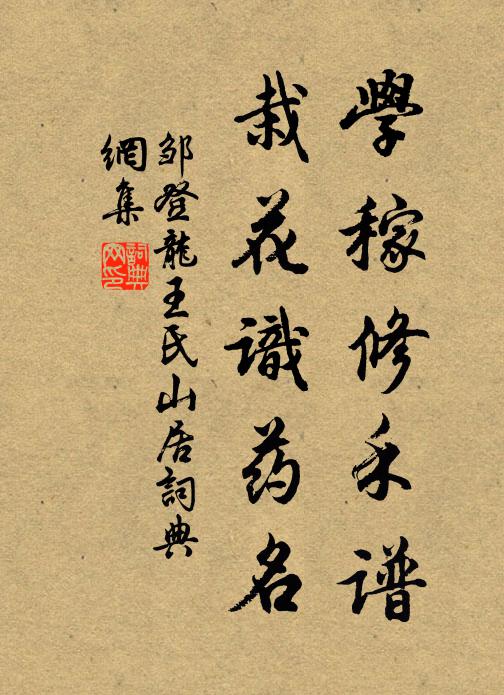 學稼修禾谱
栽花識药名
邹登龍王氏山居詞典
網集
詞典网印